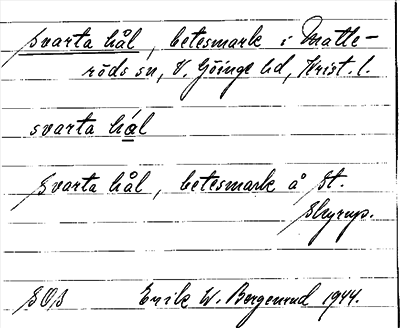 Svarta hål, betesmark i Matte-
röds sn, V. Göinge hd, Krist. l.
svarta hål
Svarta hål, betesmark å St.
Skyrup.
SOS Erik W. Bergenrud 1944.